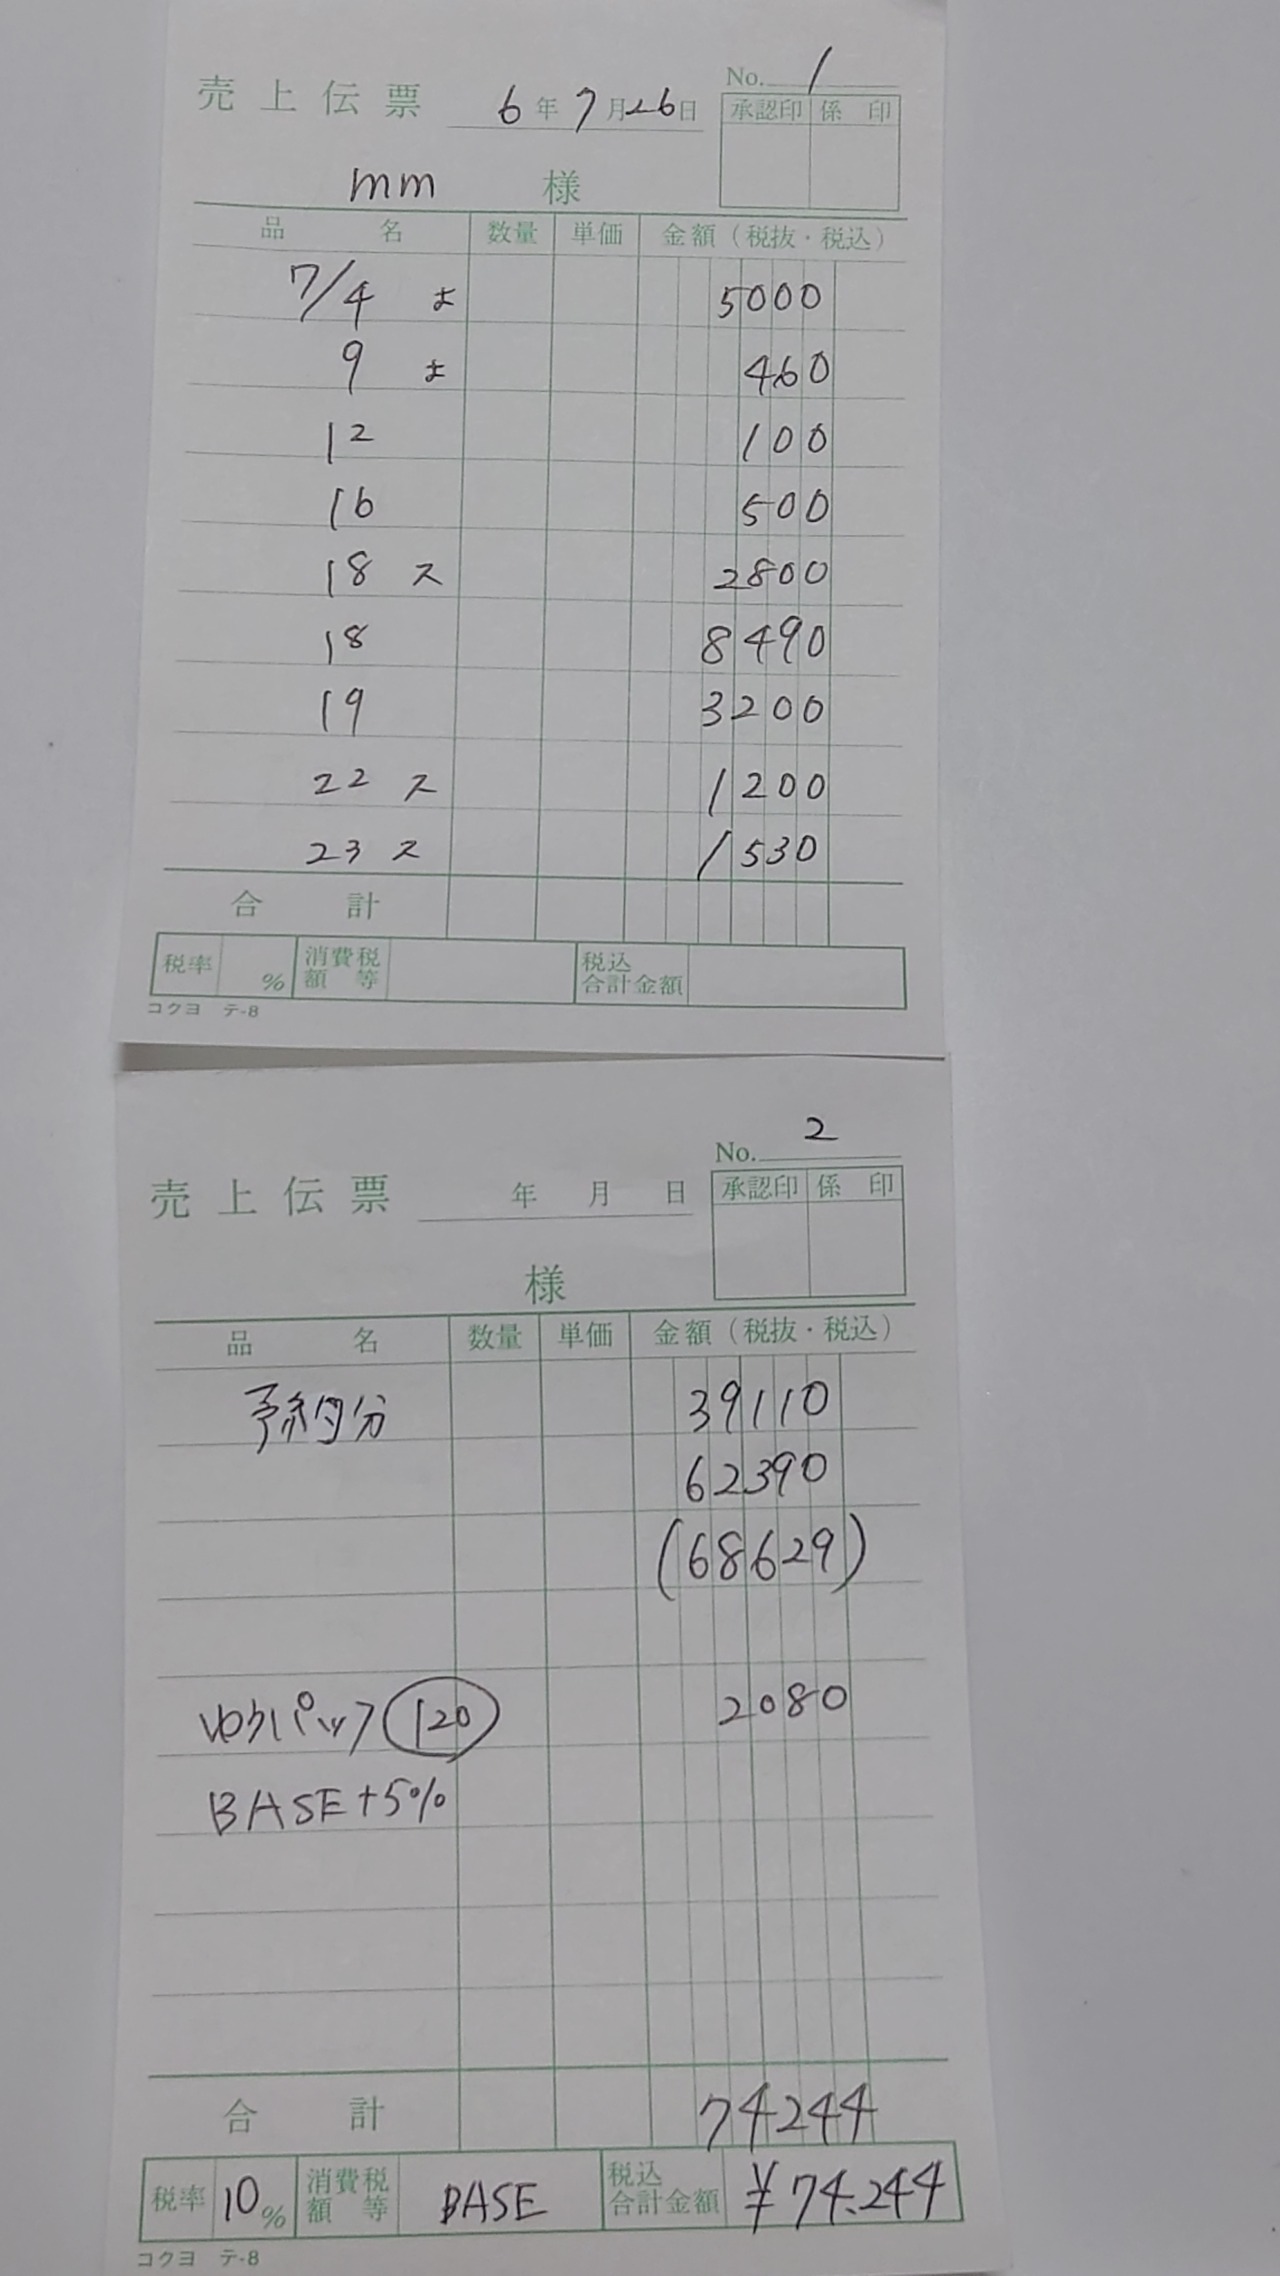 No. 1
売上伝票 6年7月26日
承認印 係印
mm 様
品名 数量 単価 金額(税抜・税込)
7/4 よ 5000
9 よ 460
12 100
16 500
18 ス 2800
18 8490
19 3200
22 ス 1200
23 ス 1530
合計
税率 % 消費税額等 税込合計金額
コクヨ テ-8
No. 2
売上伝票 年 月 日
承認印 係印
様
品名 数量 単価 金額(税抜・税込)
予約分 39110
62390
(68629)
ゆうパック 120 2080
BASE+5%
合計 74244
税率 10% 消費税額等 BASE 税込合計金額 ¥74.244
コクヨ テ-8